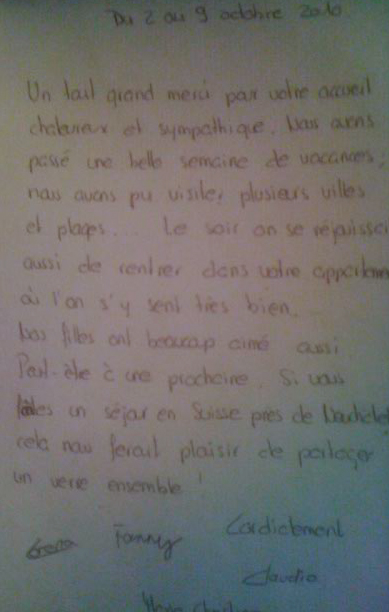 Du 2 au 9 octobre 2010
Un tout grand merci pour votre accueil
chaleureux et sympathique. Nous avons
passé une belle semaine de vacances;
nous avons pu visiter plusieurs villes
et plages... Le soir on se réjouissai
aussi de rentrer dans votre appartem
où l'on s'y sent très bien.
Nos filles ont beaucoup aimé aussi
Peut-être à une prochaine. Si vous
faites un séjour en Suisse près de Neuchâtel
cela nous ferait plaisir de partager
un verre ensemble !
Cordialement
Fanny
Claudia